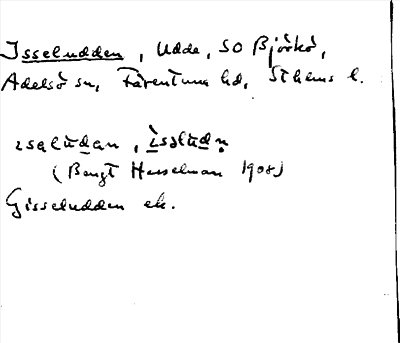 Isseludden, Udde, SO Björkö,
Adelsö sn, Färentuna hd, Sthlms l.
isalúdan, ìsəlùdn̥
(Bengt Hesselman 1908)
Gisseludden ek.